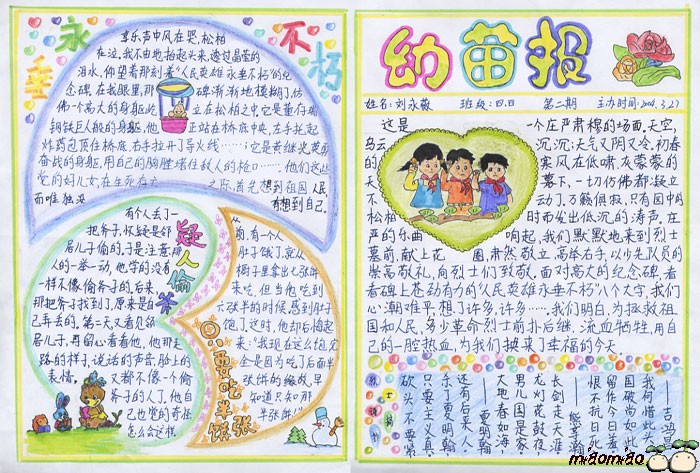 永垂不朽
哀乐声中风在哭，松柏
在泣，我不由地抬起头来，透过晶莹的
泪水，仰望着那刻着"人民英雄永垂不朽"的纪
念碑，在我眼里，那碑渐渐地模糊了，仿
佛一个高大的身躯屹立在松柏之中，它是董存瑞
钢铁巨人般的身躯，他正站在桥底中央，左手托起
炸药包顶住桥底，右手拉开了导火线……它是黄继光英勇
奋战的身躯，用自己的胸膛堵住敌人的枪口……他们这些
党的好儿女，在生死存亡之际，首先想到祖国人民
而唯独没有想到自己。
疑人偷斧
有个人丢了一
把斧子，怀疑是邻
居儿子偷的，于是注意那
人的一举一动，他穿的没有
一样不像偷斧子的，后来，
那把斧子找到了，原来是自
己弄丢的，第二天又看见邻
居儿子，再留心看看他，他那走
路的样子，说话的声音，脸上的
表情，又都不像一个偷
斧子的人了，他自
己也觉的奇怪
怎么会这样。
只要吃半张饼
从
前，有一个人
肚子饿了，就从
橱子里拿出七张饼
来吃，但当他吃到
六张半的时候，感到肚子
饱了，这时，他却后悔起
来："我现在这么饱，完
全是因为吃了后面半
张饼的缘故，早
知道只如那
半张饼！"
幼苗报
姓名：刘永薇 班级：四.四 第二期 主办时间：2004.3.27
这是一个庄严肃穆的场面，天空，
乌云沉沉；天气又阴又冷，初春
的寒风在低啸，灰蒙蒙的
天幕下，一切仿佛都凝立
不动了，万籁俱寂，只有园中的
松柏时而发出低沉的涛声，在
严的乐曲响起，我们默默地来到烈士
墓前，献上花圈，肃然敬立，高举右手，以少先队员的
崇高敬礼，向烈士们致敬，面对高大的纪念碑，看
着碑上苍劲有力的"人民英雄永垂不朽"八个大字，我们
心潮难平，想了许多，许多……我们明白，为拯救祖
国和人民，多少革命烈士前扑后继，流血牺牲，用自
己的一腔热血，为我们换来了幸福的今天。
烈士诗抄
砍头不要紧
只要主义真
杀了夏明翰
还有后来人
——夏明翰
大地春如海
男儿国是家
龙灯花鼓夜
长剑走天涯
——熊亨瀚
恨不抗日死
留作今日羞
国破尚如此
我何惜此头
——吉鸿昌
miaomiao